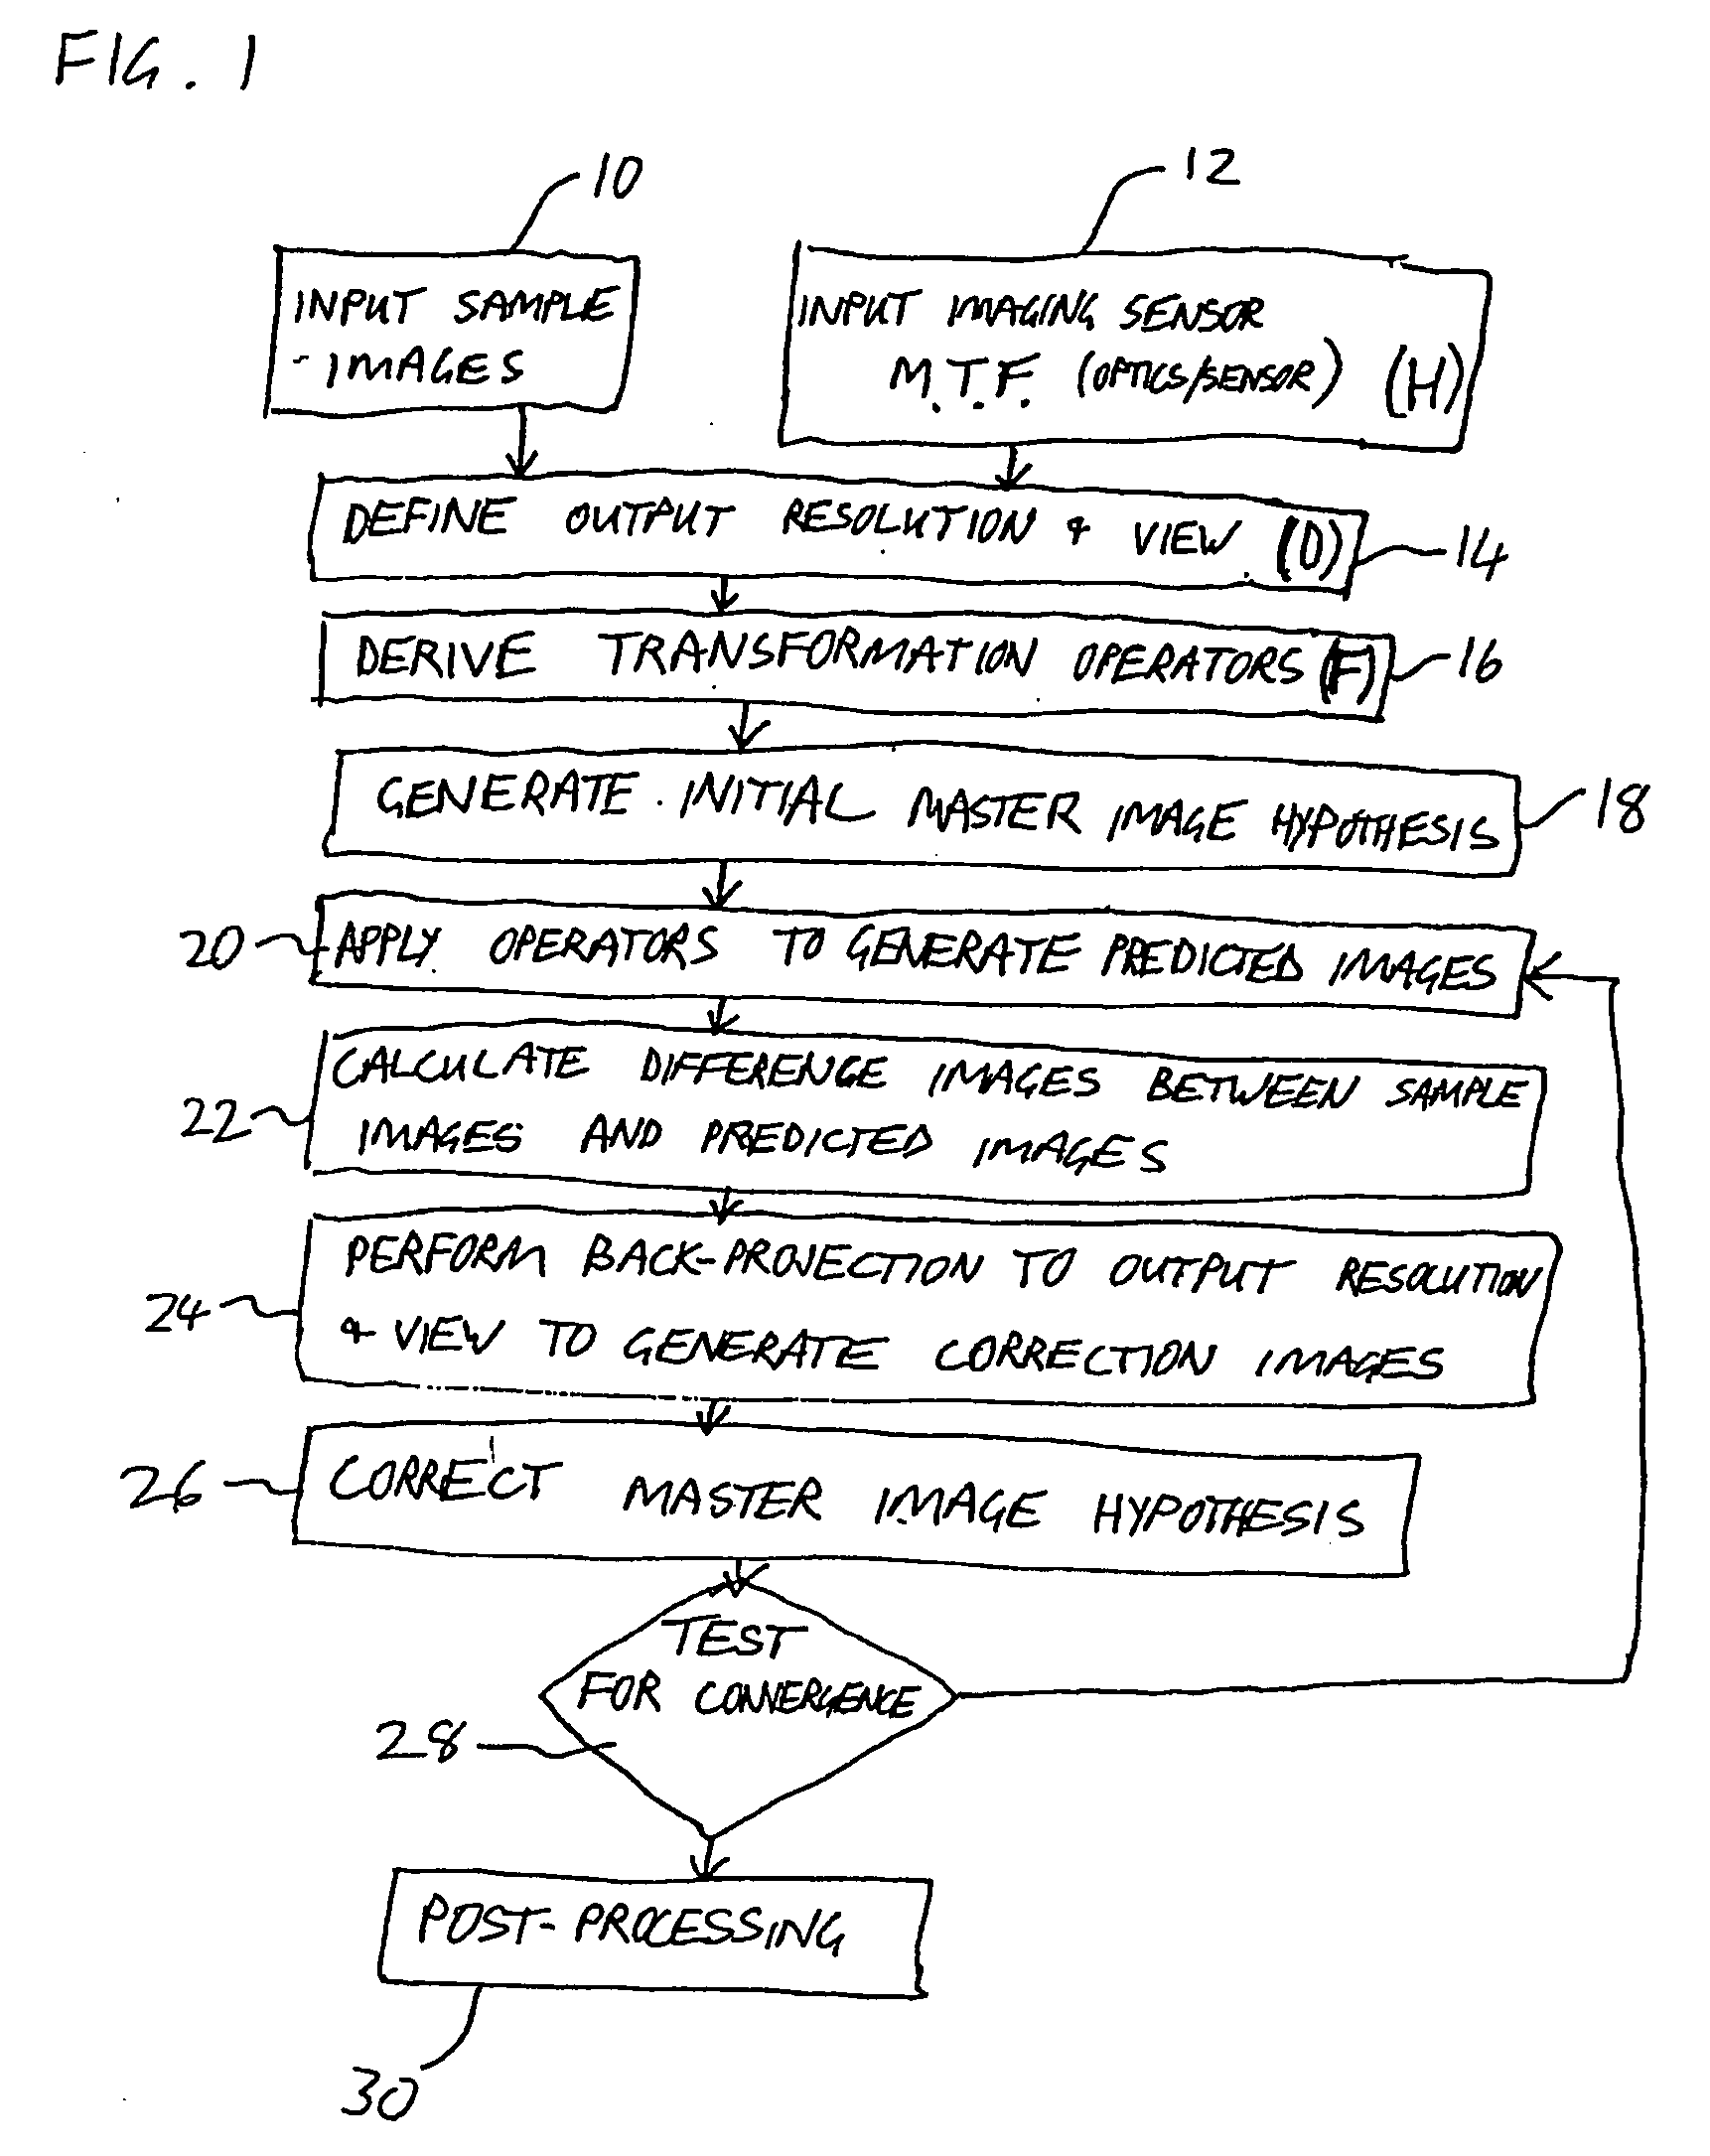 FIG. 1
10
12
INPUT SAMPLE
IMAGES
INPUT IMAGING SENSOR
M.T.F. (OPTICS/SENSOR) (H)
DEFINE OUTPUT RESOLUTION & VIEW (D)
14
DERIVE TRANSFORMATION OPERATORS (F)
16
GENERATE INITIAL MASTER IMAGE HYPOTHESIS
18
20
APPLY OPERATORS TO GENERATE PREDICTED IMAGES
22
CALCULATE DIFFERENCE IMAGES BETWEEN SAMPLE
IMAGES AND PREDICTED IMAGES
24
PERFORM BACK-PROJECTION TO OUTPUT RESOLUTION
& VIEW TO GENERATE CORRECTION IMAGES
26
CORRECT MASTER IMAGE HYPOTHESIS
TEST
FOR CONVERGENCE
28
POST-PROCESSING
30